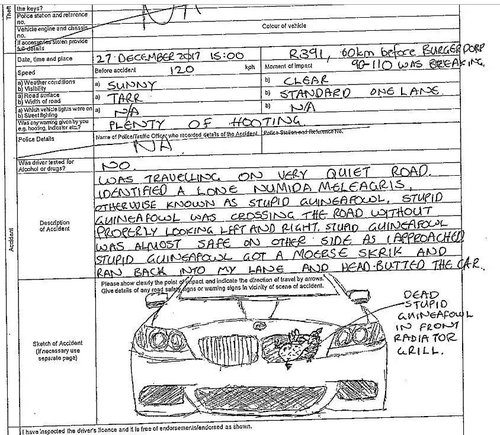 Theft
the keys?
N/A
Police station and reference no.
Vehicle engine and chassis no.
Colour of vehicle
If accessories stolen provide full details
Date, time and place
27 DECEMBER 2017 15:00
R391, 60km before BURGERDORP
Speed
Before accident
120
kph
Moment of impact
90-110 WAS BREAKING.
a) Weather conditions
b) Visibility
a) SUNNY
b) CLEAR
a) Road surface
b) Width of road
a) TARR
b) STANDARD ONE LANE.
a) Which vehicle lights were on
b) Street lighting
a) N/A
b) N/A
Was warning given by you e.g. hooting, indicator etc.?
PLENTY OF HOOTING
Police Details
Name of Police/Traffic Officer who recorded details of the Accident
Police Station and Reference No.
N/A
Was driver tested for Alcohol or drugs?
NO
Accident
Description of Accident
WAS TRAVELLING ON VERY QUIET ROAD.
IDENTIFIED A LONE NUMIDA MELEAGRIS,
OTHERWISE KNOWN AS STUPID GUINEAFOWL. STUPID
GUINEAFOWL WAS CROSSING THE ROAD WITHOUT
PROPERLY LOOKING LEFT AND RIGHT. STUPID GUINEAFOWL
WAS ALMOST SAFE ON OTHER SIDE AS I APPROACHED
STUPID GUINEAFOWL GOT A MOERSE SKRIK AND
RAN BACK INTO MY LANE AND HEAD-BUTTED THE CAR.
Sketch of Accident
(If necessary use separate page)
Please show clearly the point of impact and indicate the direction of travel by arrows.
Give details of any road safety signs or warning signs in vicinity of scene of accident.
DEAD
STUPID
GUINEAFOWL
IN FRONT
RADIATOR
GRILL.
I have inspected the driver's licence and it is free of endorsements/endorsed as shown.